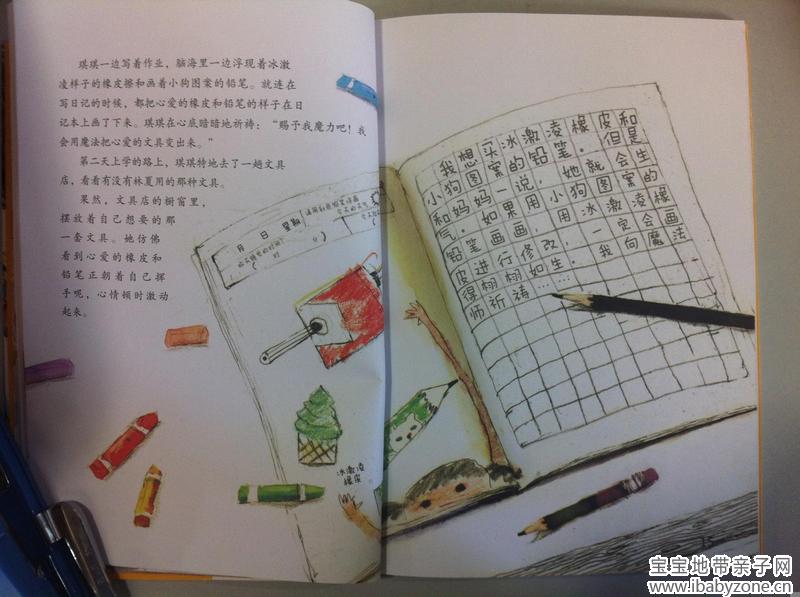 琪琪一边写着作业，脑海里一边浮现着冰激
凌样子的橡皮擦和画着小狗图案的铅笔。就连在
写日记的时候，都把心爱的橡皮和铅笔的样子在日
记本上画了下来。琪琪在心底暗暗地祈祷：“赐予我魔力吧！我
会用魔法把心爱的文具变出来。”
第二天上学的路上，琪琪特地去了一趟文具
店，看看有没有林夏用的那种文具。
果然，文具店的橱窗里，
摆放着自己想要的那
一套文具。她仿佛
看到心爱的橡皮和
铅笔正朝着自己挥
手呢，心情顿时激动
起来。
月 日 星期
冰激凌
橡皮
我想买冰激凌橡皮和
小狗图案的铅笔。但是
和妈妈一说，她就会生
气。如果用小狗图案的
铅笔画画，用冰激凌橡
皮进行修改，一定会画
得栩栩如生。我向魔法
师祈祷……
15
宝宝地带亲子网
www.ibabyzone.cn